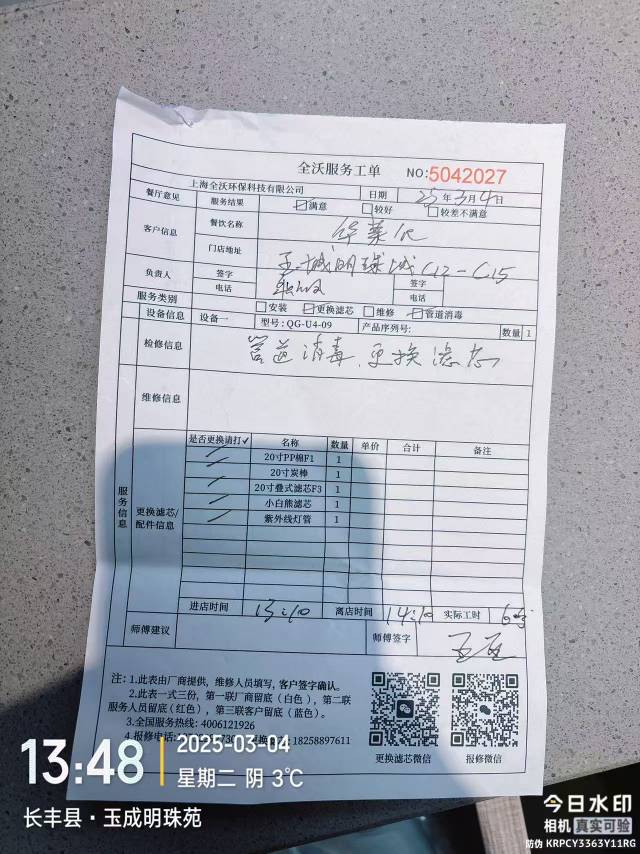 全沃服务工单 NO:5042027
上海全沃环保科技有限公司 日期 25年3月4日
餐厅意见 服务结果 ☑满意 □较好 □较差不满意
客户信息 餐饮名称 华莱
门店地址 玉城明珠城C12-C15
负责人 签字 签字
电话 电话
服务类别 □安装 ☑更换滤芯 □维修 ☑管道消毒
设备信息 设备一 型号:QG-U4-09 产品序列号: 数量 1
检修信息 管道消毒、更换滤芯
维修信息
服务信息
是否更换请打✓ 名称 数量 单价 合计 备注
✓ 20寸PP棉F1 1
✓ 20寸炭棒 1
✓ 20寸叠式滤芯F3 1
✓ 小白熊滤芯 1
✓ 紫外线灯管 1
更换滤芯/
配件信息
进店时间 13:10 离店时间 14:10 实际工时
师傅建议 师傅签字
注:1.此表由厂商提供,维修人员填写,客户签字确认。
2.此表一式三份,第一联厂商留底(白色),第二联
服务人员留底(红色),第三联客户留底(蓝色)。
3.全国服务热线: 4006121926
4.报修电话: 18258897611
更换滤芯微信 报修微信
13:48
2025-03-04
星期二 阴 3℃
长丰县·玉成明珠苑
今日水印
相机 真实可验
防伪 KRPCY3363Y11RG